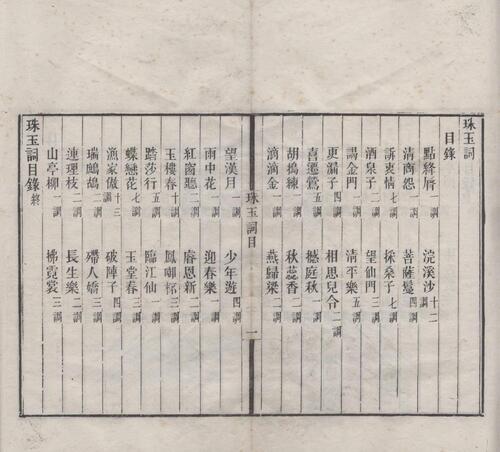 珠玉詞
目錄
點絳脣 一調 浣溪沙 十二調
清商怨 一調 菩薩蠻 四調
訴衷情 七調 採桑子 七調
酒泉子 二調 望仙門 三調
謁金門 一調 清平樂 五調
更漏子 四調 相思兒令 二調
喜遷鶯 五調 撼庭秋 一調
胡搗練 一調 秋蕊香 二調
滴滴金 一調 燕歸梁 二調
珠玉詞目 一
望漢月 一調 少年遊 四調
雨中花 一調 迎春樂 一調
紅窗聽 二調 睿恩新 二調
玉樓春 十調 鳳啣盃 三調
踏莎行 五調 臨江仙 一調
蝶戀花 七調 玉堂春 三調
漁家傲 十三調 破陣子 四調
瑞鷓鴣 二調 殢人嬌 三調
連理枝 二調 長生樂 二調
山亭柳 一調 拂霓裳 三調
珠玉詞目錄 終